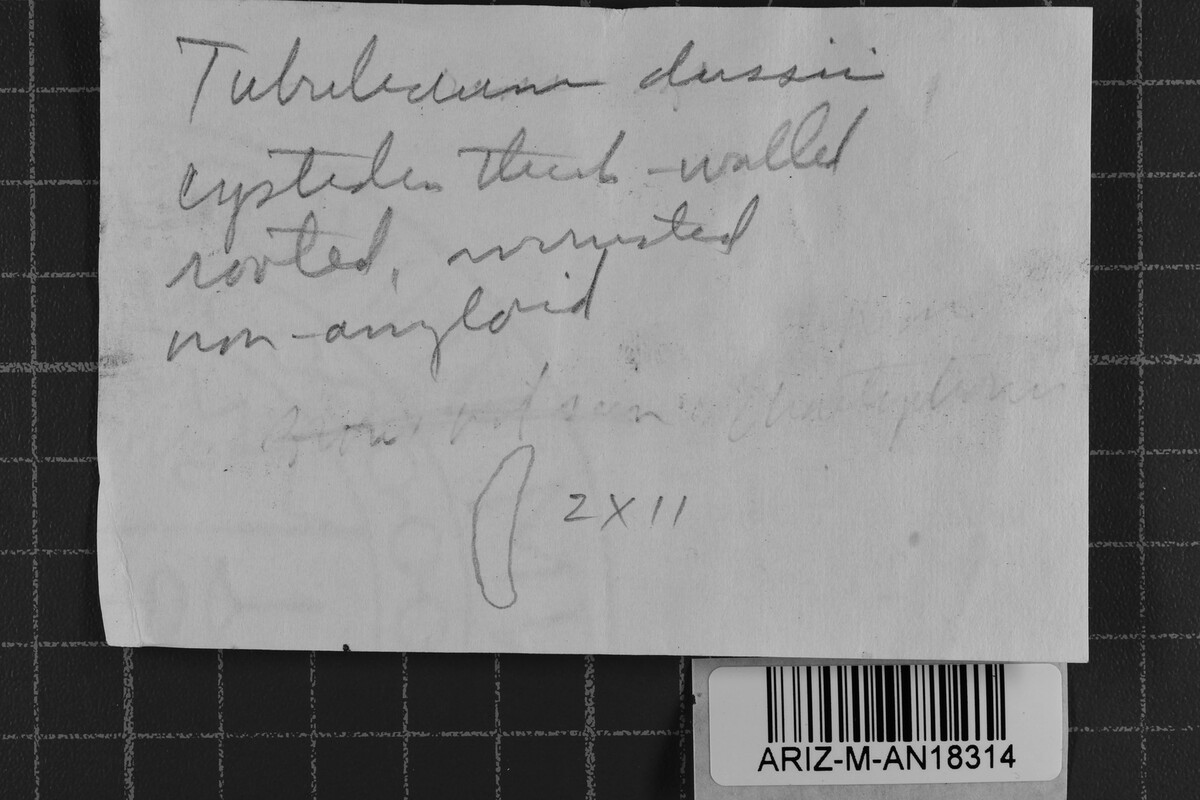 Tubulicium dussii
cystidia thick-walled
rooted, incrusted
non-amyloid
not seen
2 X 11
ARIZ-M-AN18314